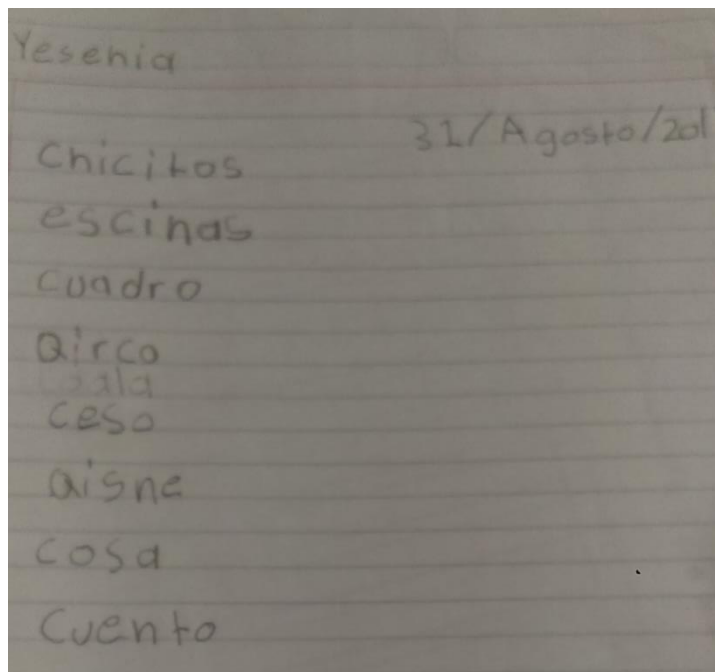 Yesenia
31/Agosto/201
Chicitos
escinas
cuadro
Qirco
ceso
aisne
cosa
cuento